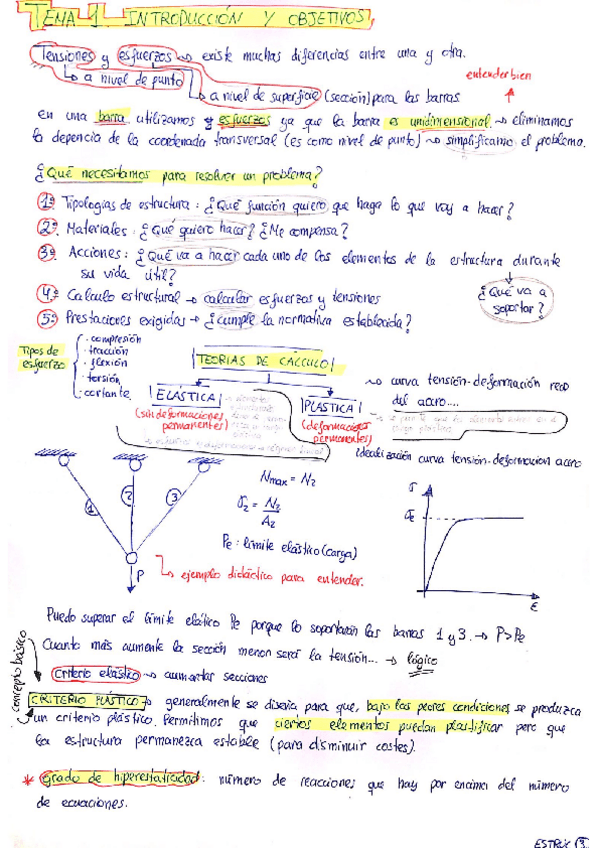 TEMA 1 INTRODUCCIÓN Y OBJETIVOS
Tensiones y esfuerzos → existe muchas diferencias entre una y otra.
↳ a nivel de punto
entender bien
↳ a nivel de superficie (sección) para las barras
en una barra utilizamos y esfuerzos ya que la barra es unidimensional. → eliminamos
la depencia de la coordenada transversal (es como nivel de punto) → simplificamos el problema.
¿Qué necesitamos para resolver un problema?
1º Tipologías de estructura: ¿Qué función quiero que haga lo que voy a hacer?
2º Materiales: ¿Qué quiero hacer? ¿Me compensa?
3º Acciones: ¿Qué va a hacer cada uno de los elementos de la estructura durante
su vida útil?
¿Qué va a
soportar?
4º Calculo estructural → calcular esfuerzos y tensiones
5º Prestaciones exigidas → ¿cumple la normativa establecida?
Tipos de
esfuerzo
· compresión
· tracción
· flexión
· torsión
· cortante
TEORIAS DE CÁLCULO
ELÁSTICA
(sin deformaciones
permanentes)
PLÁSTICA
(deformaciones
permanentes)
→ curva tensión-deformación real
del acero....
idealización curva tensión-deformación acero
1
2
3
P
Nmax = N2
σ2 = N2
A2
Pe: límite elástico (carga)
↳ ejemplo didáctico para entender.
σ
σe
ε
Puedo superar el límite elático Pe porque lo soportarán las barras 1 y 3. → P>Pe
Cuanto más aumente la sección menor será la tensión... → lógico
concepto básico
Criterio elástico → aumentar secciones
CRITERIO PLÁSTICO → generalmente se diseña para que, bajo las peores condiciones se produzca
un criterio plástico. Permitimos que ciertos elementos puedan plastificar pero que
la estructura permanezca estable (para disminuir costes).
* Grado de hiperestaticidad: número de reacciones que hay por encima del número
de ecuaciones.